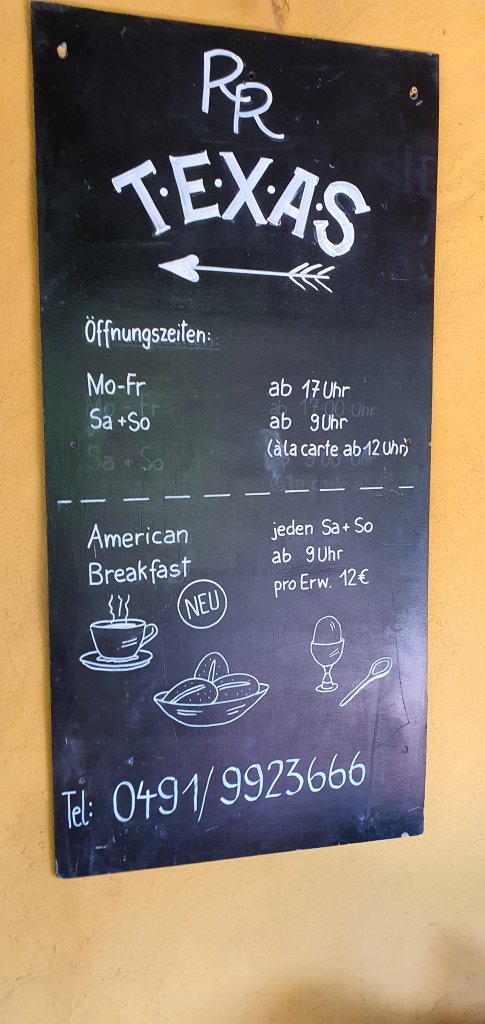 RR
T·E·X·A·S
Öffnungszeiten:
Mo-Fr ab 17 Uhr
Sa + So ab 9 Uhr
(à la carte ab 12 Uhr)
American jeden Sa + So
Breakfast ab 9 Uhr
pro Erw. 12€
NEU
Tel: 0491/9923666